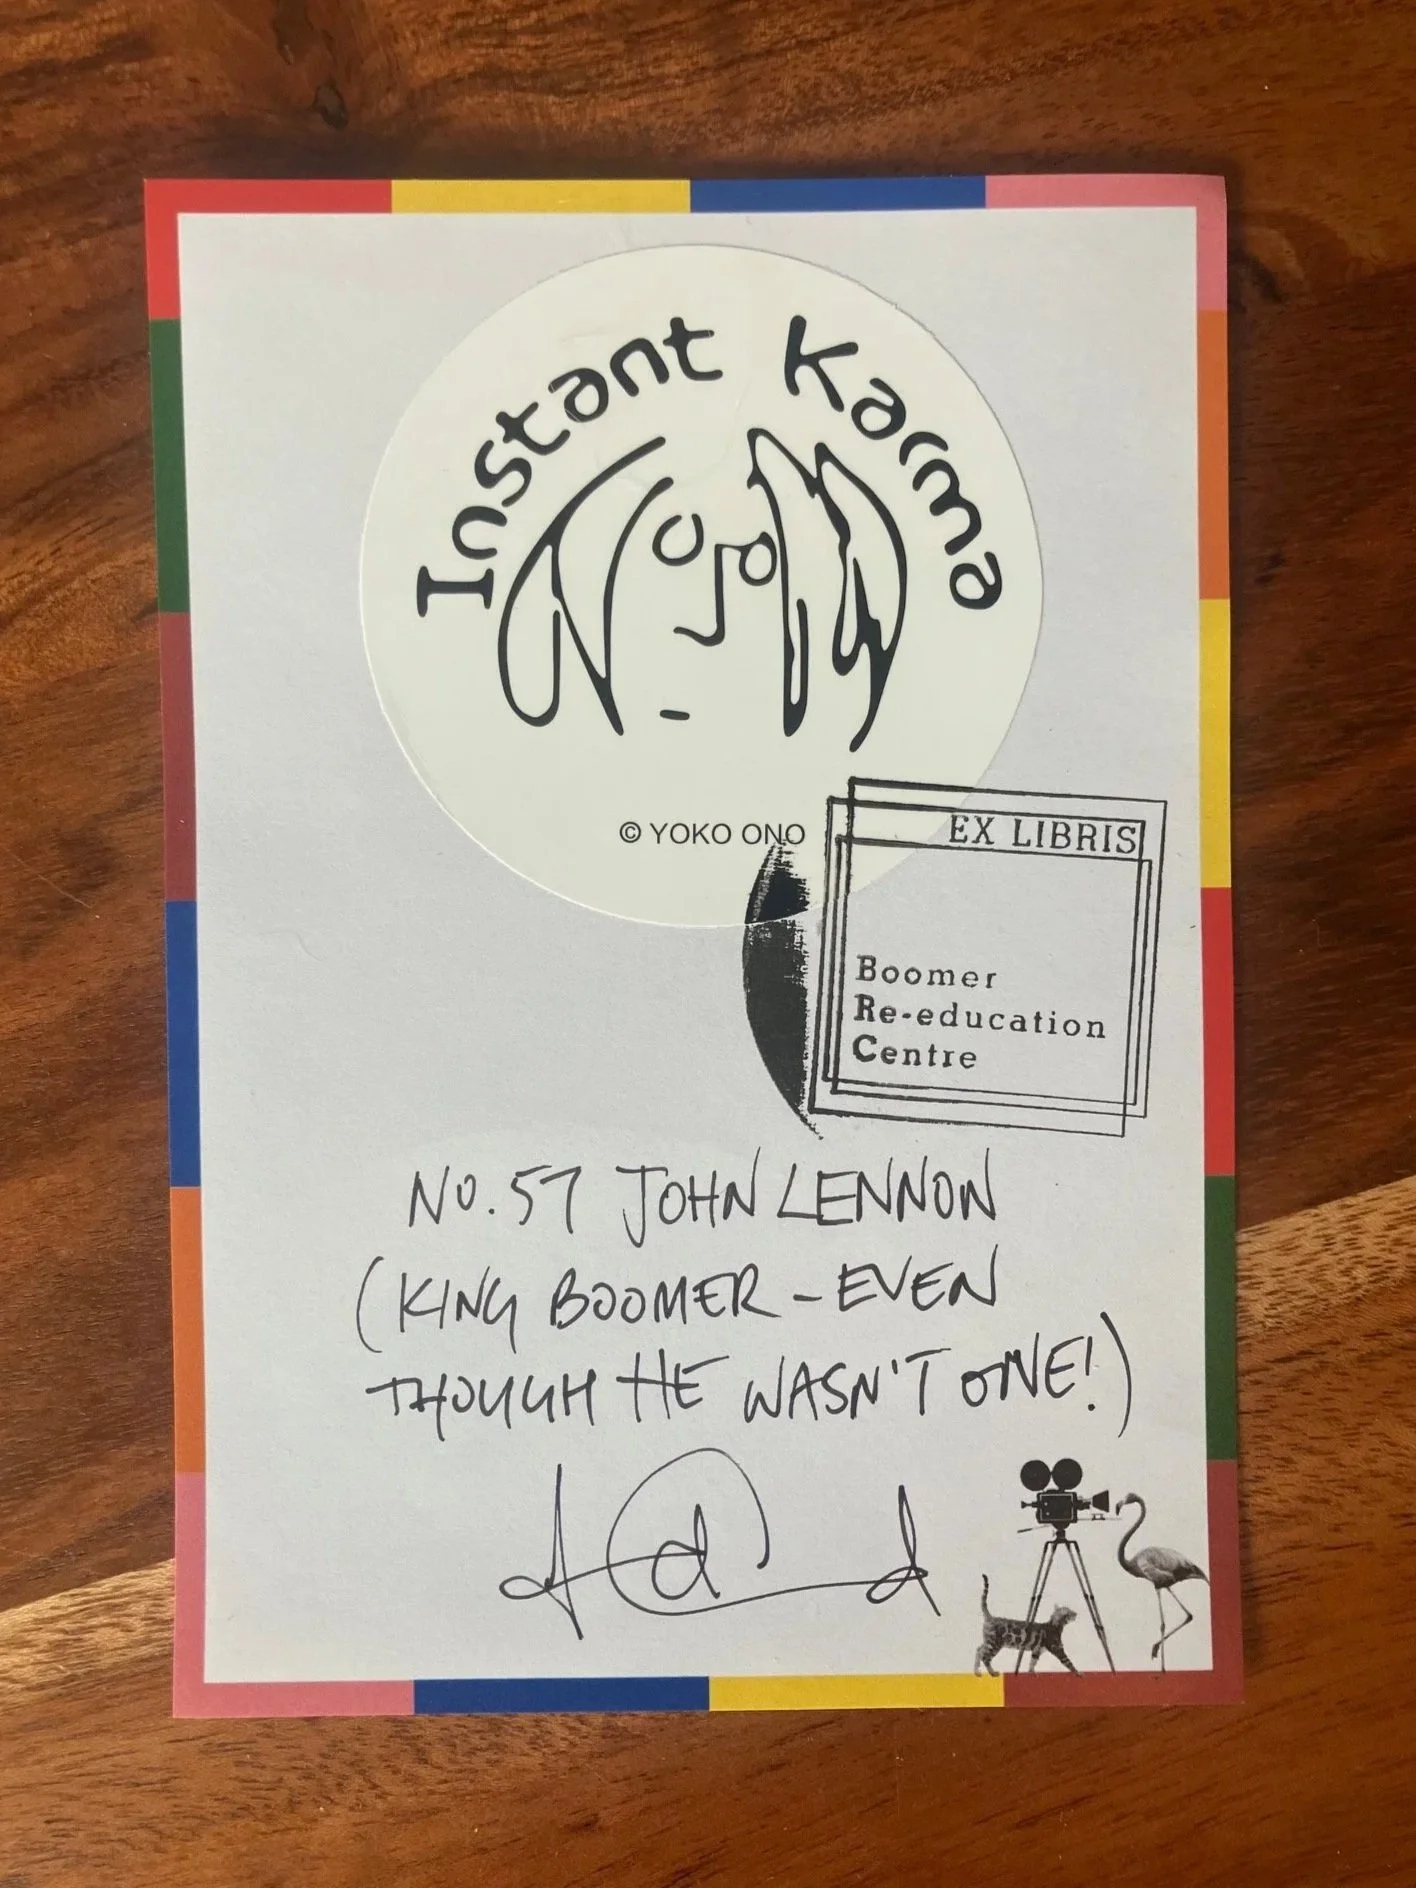 Instant Karma
© YOKO ONO
EX LIBRIS
Boomer
Re-education
Centre
NO. 57 JOHN LENNON
(KING BOOMER - EVEN
THOUGH HE WASN'T ONE!)